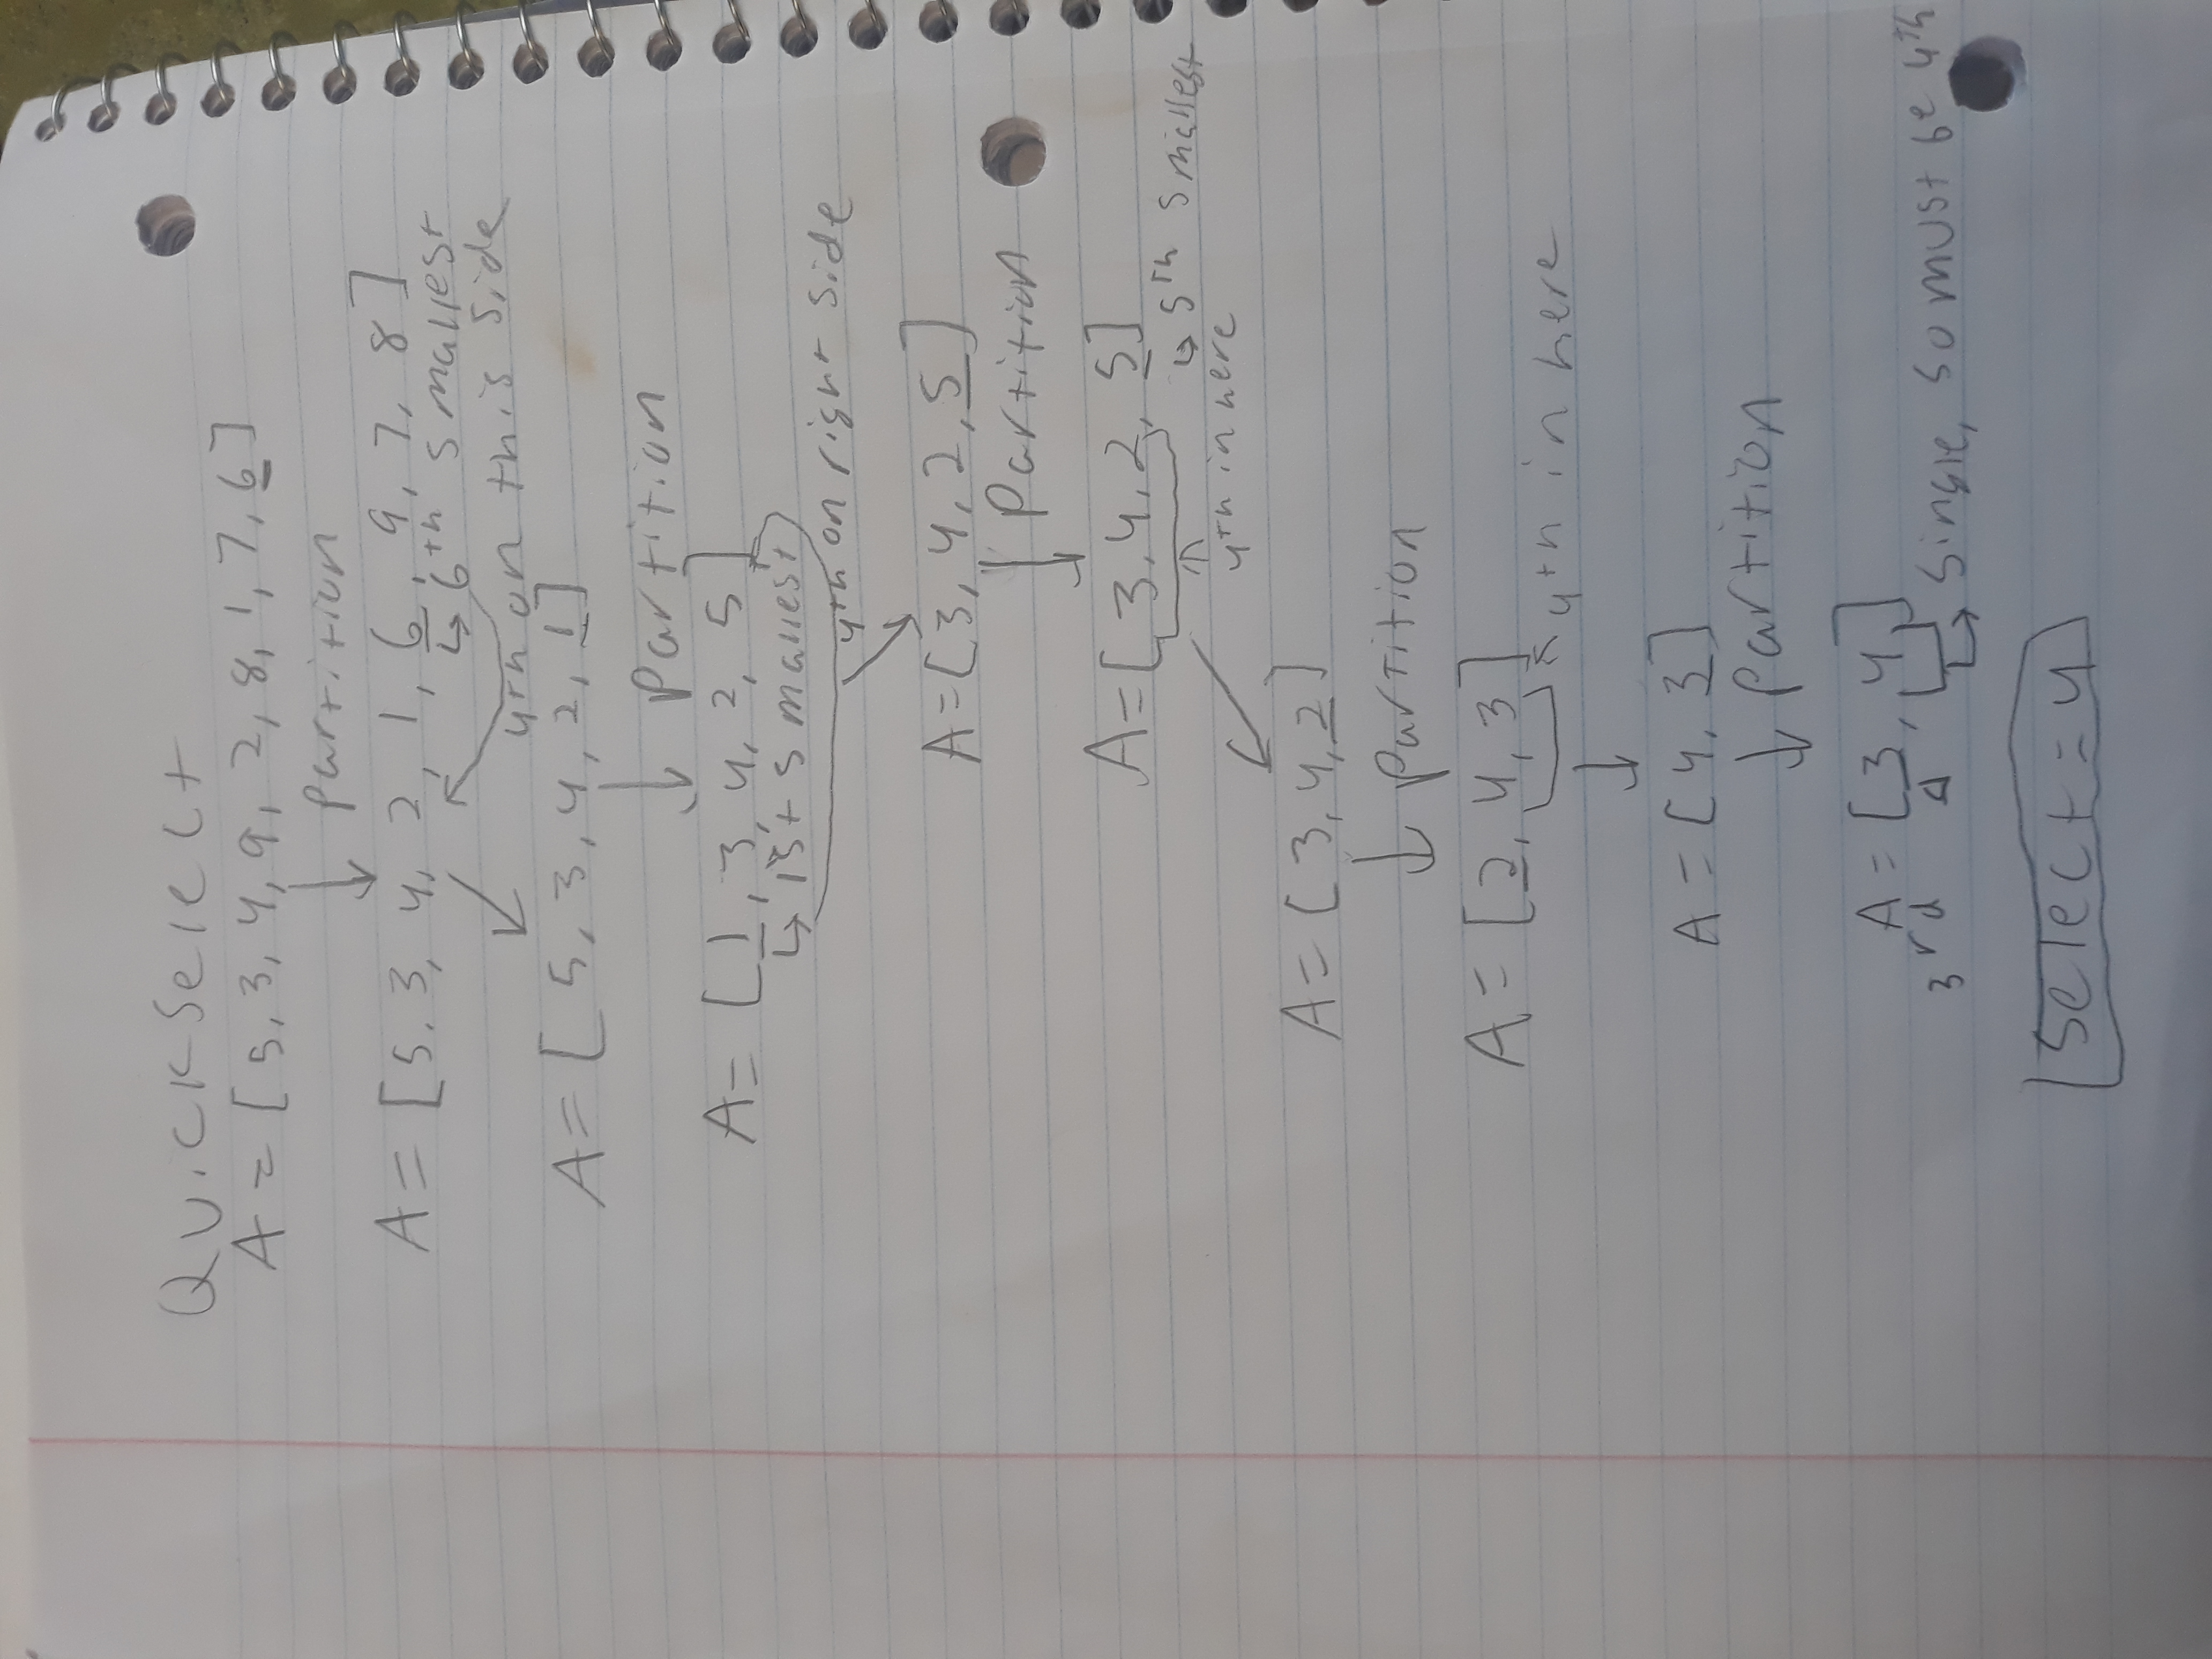 QuickSelect
A = [5, 3, 4, 9, 2, 8, 1, 7, 6]
Partition
A = [5, 3, 4, 2, 1, 6, 9, 7, 8]
↳ 6th smallest
4th on this side
A = [5, 3, 4, 2, 1]
Partition
A = [1, 3, 4, 2, 5]
↳ 1st smallest
4th on right side
A = [3, 4, 2, 5]
Partition
A = [3, 4, 2, 5]
↳ 5th smallest
4th in here
A = [3, 4, 2]
Partition
A = [2, 4, 3]
4th in here
A = [4, 3]
Partition
A = [3, 4]
3rd
↳ Single, so must be 4th
Select = 4